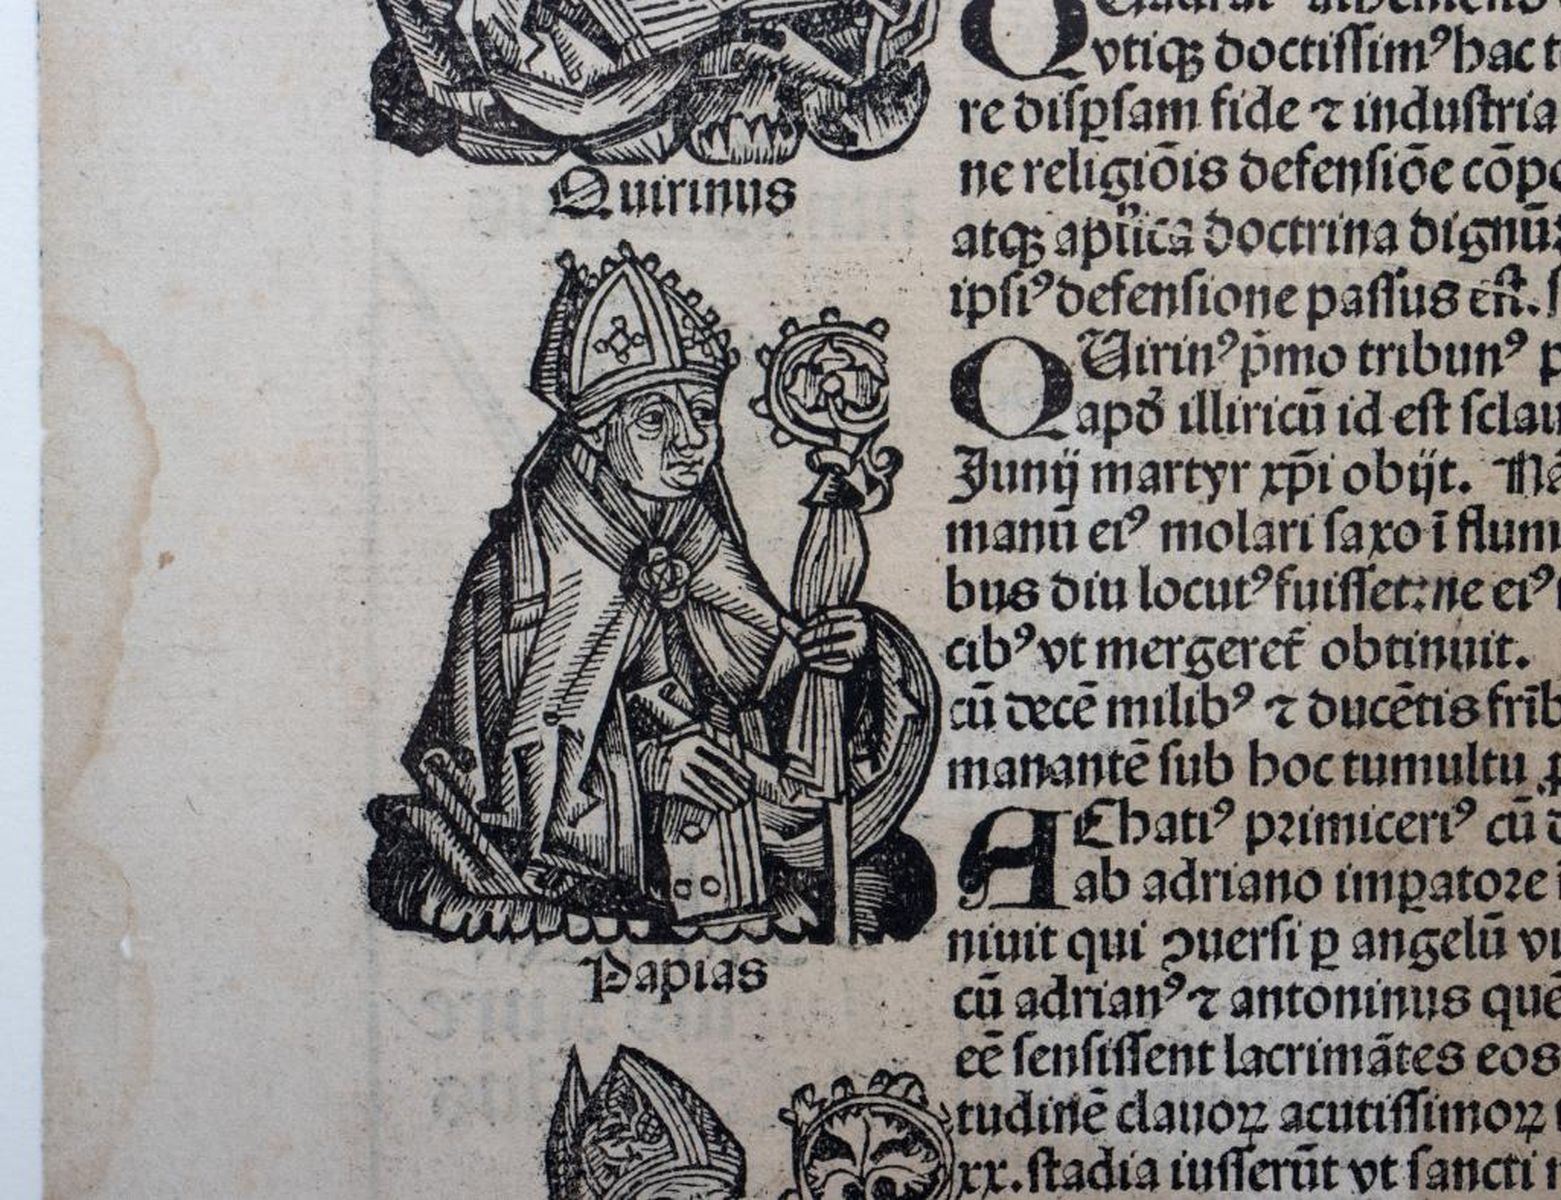 Quirinus
Papias
vtiqꝫ doctissimꝰ hac
re disꝑsam fide ⁊ industria
ne religiōis defensiōe
atqꝫ apl'ica doctrina dignū
ipsiꝰ defensione passus est.
QUirinꝰ p̄mo tribunꝰ
apđ illiricū id est
Junij martyr xp̄i obijt.
manū eiꝰ molari saxo ī
bus diu locutꝰ fuisset: ne eiꝰ
cibꝰ vt mergeret̄ obtinuit.
cū decē milibꝰ ⁊ ducētis
manantē sub hoc tumultu
AChatiꝰ primiceriꝰ cū
ab adriano imꝑatore
niuit qui ꝯuersi ꝑ angelū
cū adrianꝰ ⁊ antoninus quē
eē sensissent lacrimātes eos
tudinē clauoꝝ acutissimoꝝ
xx. stadia iusserūt vt sancti